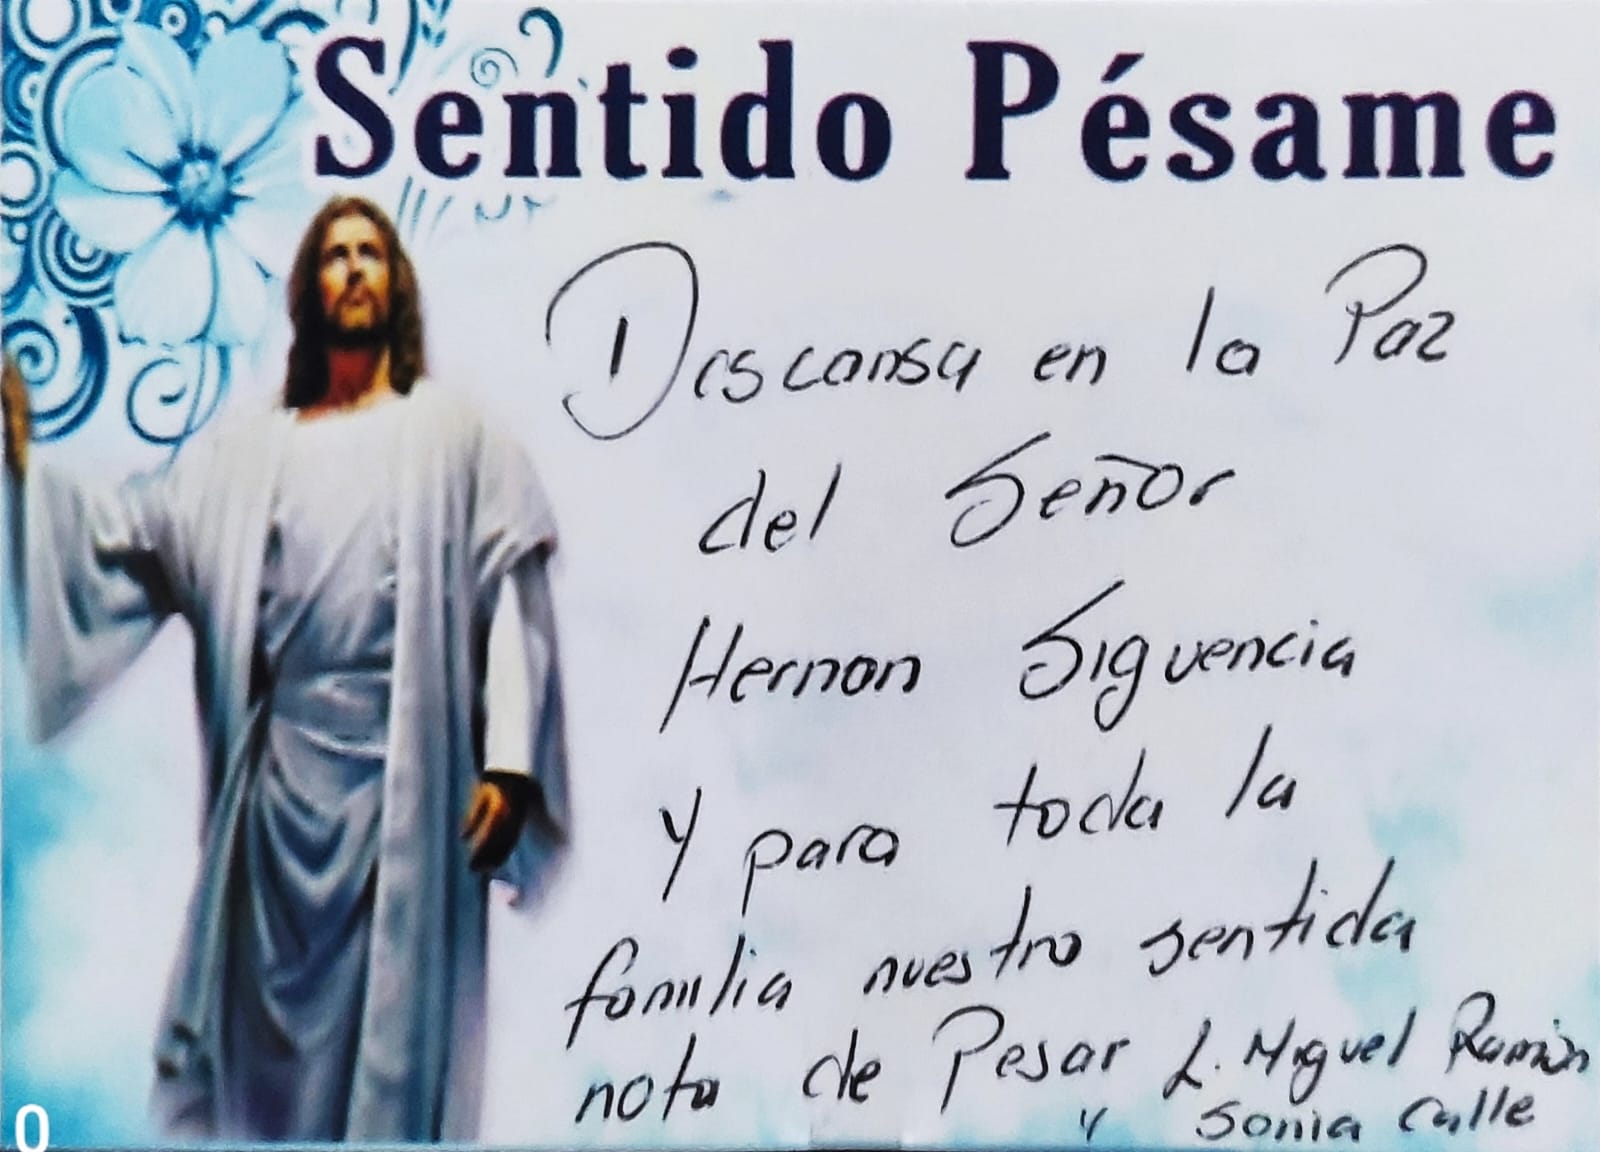 Sentido Pésame
Descansa en la Paz
del Señor
Hernan Siguencia
y para toda la
familia nuestro sentida
nota de Pesar L. Miguel Ramón
y Sonia Calle
0